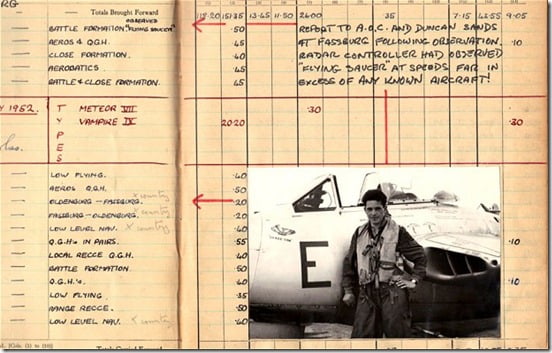 RG
Totals Brought Forward 112·20 151·35 13·45 11·50 26·00 35 7·15 42·55 9·05
OBSERVED
BATTLE FORMATION "FLYING SAUCER" ·50
AEROS & Q.G.H. 45
CLOSE FORMATION. 40
AEROBATICS 45
BATTLE & CLOSE FORMATION. 45
REPORT TO A.O.C. AND DUNCAN SANDS
AT FASSBURG FOLLOWING OBSERVATION. ·10
RADAR CONTROLLER HAD OBSERVED
"FLYING SAUCER" AT SPEEDS FAR IN
EXCESS OF ANY KNOWN AIRCRAFT!
Y 1952. T METEOR VII ·30
Y VAMPIRE IX 20·20 ·30
P
E
S
LOW FLYING. ·40
AEROS Q.G.H. ·50
OLDENBURG – FASSBURG. x country ·20
FASSBURG – OLDENBURG. country ·20
LOW LEVEL NAV. x country ·40
Q.G.H's IN PAIRS. ·55
LOCAL RECCE Q.G.H. ·40
BATTLE FORMATION ·50
Q.G.H's. ·40
LOW FLYING ·35
RANGE RECCE. ·50
LOW LEVEL NAV. x country ·60
·10
·10
E
[Cols. (1) to (10)]